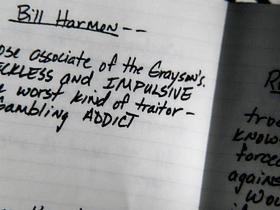 Bill Harmon--
ose associate of the Grayson's.
ECKLESS AND IMPULSIVE
e worst kind of traitor-
Gambling ADDICT
R
trod
KNOW
forced
again
Wou